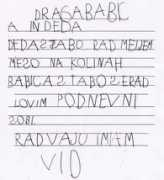 DRAGA BABI
A IN DEDA
DEDA S TABO RAD MELJEM
MESO NA KOLINAH
BABICA S TABO ZE RAD
LOVIM PODNEVNI
RAD VAJU IMAM
VID